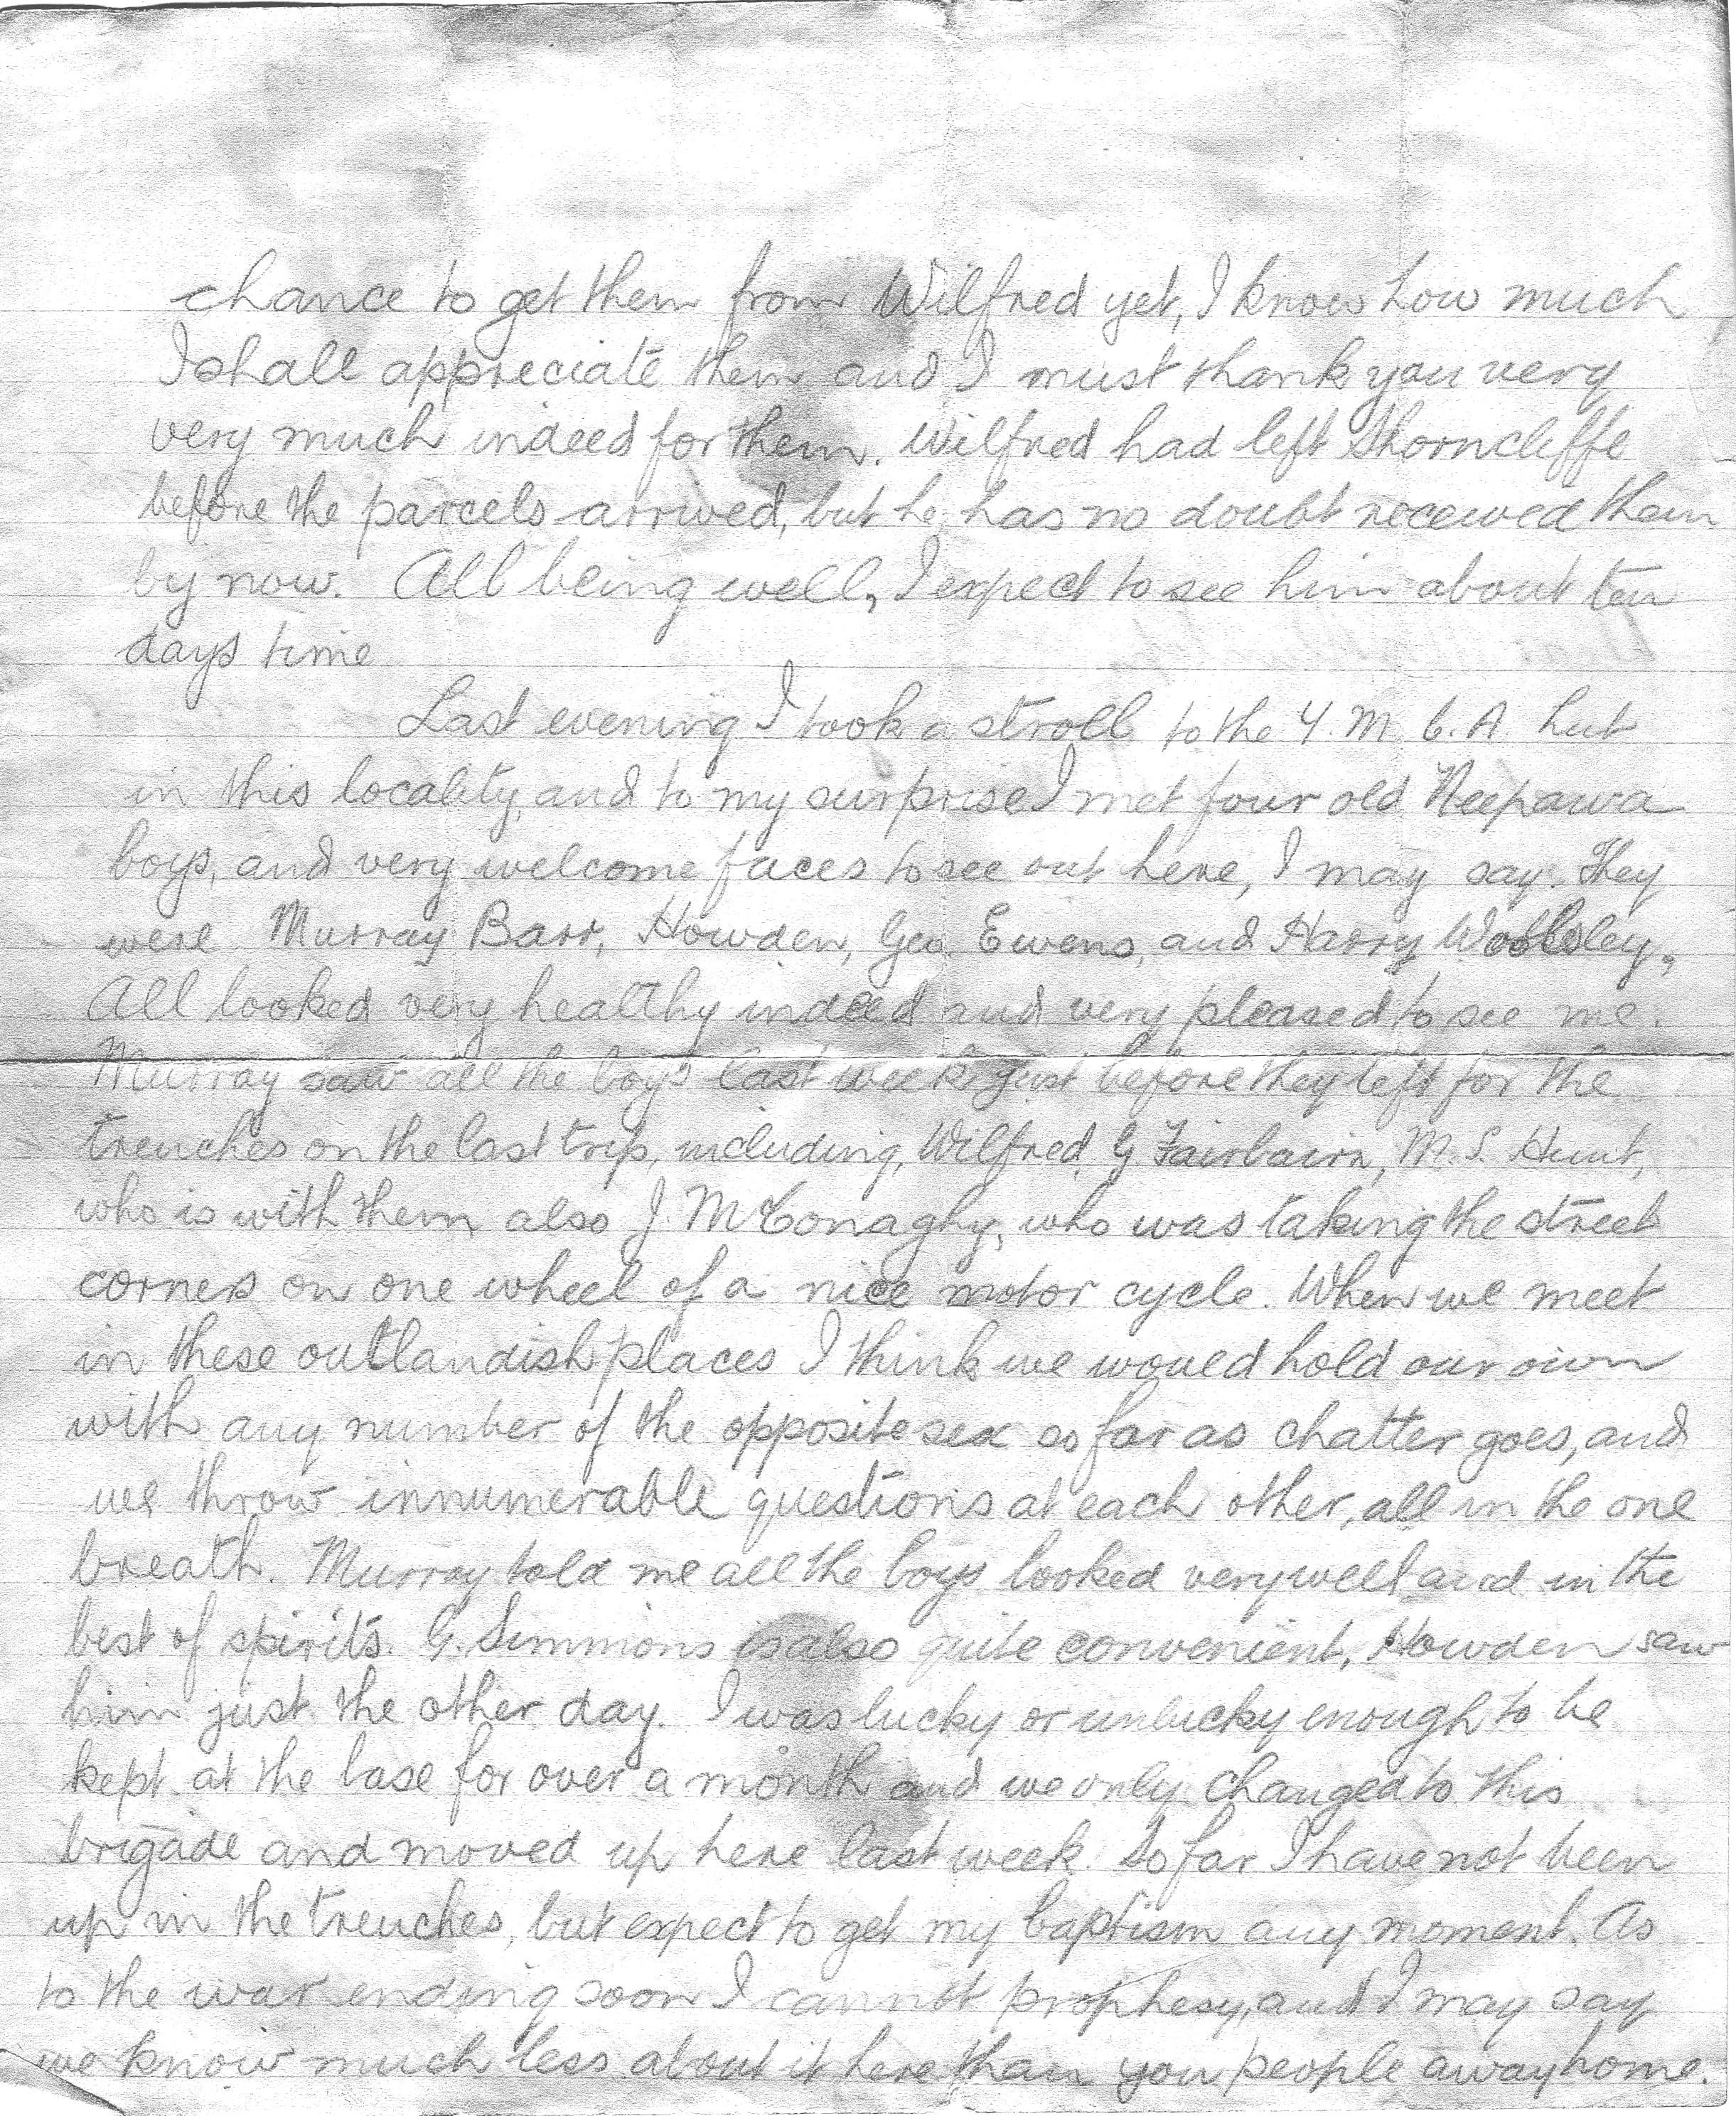 chance to get them from Wilfred yet, I know how much
I shall appreciate them and I must thank you very
very much indeed for them. Wilfred had left Shorncliffe
before the parcels arrived, but he has no doubt received them
by now. All being well, I expect to see him about ten
days time
Last evening I took a stroll to the Y.M.C.A. hut
in this locality, and to my surprise I met four old Neepawa
boys, and very welcome faces to see out here, I may say. They
were Murray Barr, Howden, Geo. Ewens, and Harry Woolsley,
All looked very healthy indeed and very pleased to see me.
Murray saw all the boys last week just before they left for the
trenches on the last trip, including, Wilfred, G Fairbairn, M.S. Hunt,
who is with them also J. McConaghy, who was taking the street
corners on one wheel of a nice motor cycle. When we meet
in these outlandish places I think we would hold our own
with any number of the opposite sex as far as chatter goes, and
we throw innumerable questions at each other, all in the one
breath. Murray told me all the boys looked very well and in the
best of spirits. G. Simmons is also quite convenient, Howden saw
him just the other day. I was lucky or unlucky enough to be
kept at the base for over a month and we only changed to this
brigade and moved up here last week. So far I have not been
up in the trenches, but expect to get my baptism any moment. As
to the war ending soon I cannot prophesy, and I may say
we know much less about it here than you people away home.